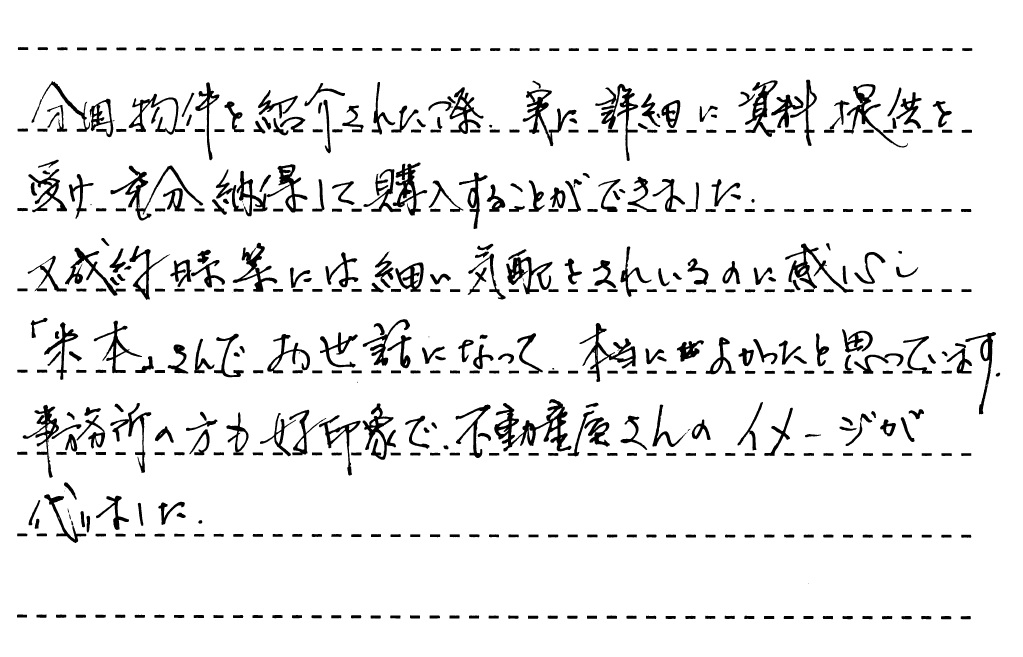 今回物件を紹介された際、実に詳細に資料提供を
受け充分納得して購入することができました.
又成約時等には細い気配をされいるのに感心し
「米本」さんでお世話になって、本当によかったと思っています.
事務所の方も好印象で、不動産屋さんのイメージが
代りました.